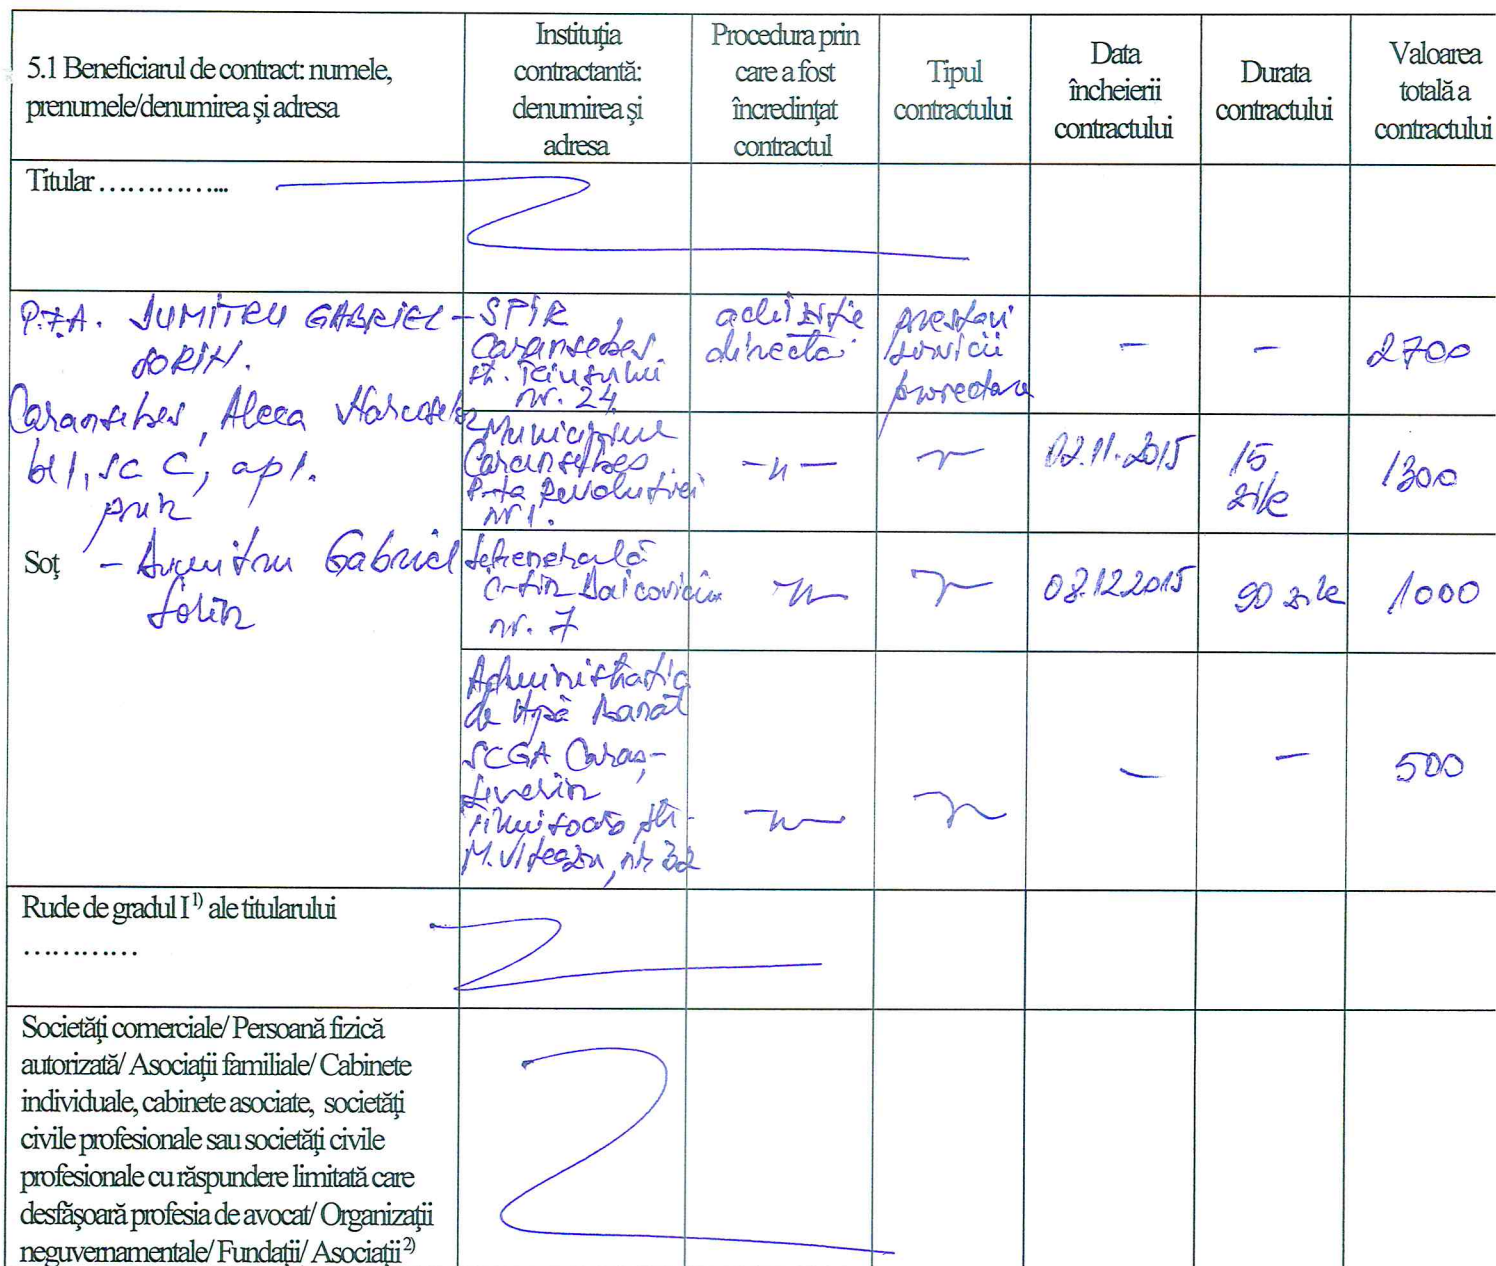 5.1 Beneficiarul de contract: numele,
prenumele/denumirea şi adresa
Instituţia
contractantă:
denumirea şi
adresa
Procedura prin
care a fost
încredinţat
contractul
Tipul
contractului
Data
încheierii
contractului
Durata
contractului
Valoarea
totală a
contractului
Titular …………...
P.F.A. DUMITRU GABRIEL
SORIN.
Caransebes, Aleea
bl 1, sc C, ap 1.
prin
Soţ – Dumitru Gabriel
Sorin
- SPIR
Caransebes.
nr. 24
achiziţie
directa
prestari
servicii
proectare
–
–
2700
Municipiul
Caransebes
P-ta Revolutiei
nr 1.
-"-
02.11.2015
15
zile
1300
C-tin Daicoviciu
nr. 7
-"-
08.12.2015
90 zile
1000
Administratia
de Apă Banat
SCGA Caras-
Severin
Timisoara str.
M. Viteazu, nr 32
-"-
–
–
500
Rude de gradul I 1) ale titularului
…………
Societăţi comerciale/ Persoană fizică
autorizată/ Asociaţii familiale/ Cabinete
individuale, cabinete asociate, societăţi
civile profesionale sau societăţi civile
profesionale cu răspundere limitată care
desfăşoară profesia de avocat/ Organizaţii
neguvernamentale/ Fundaţii/ Asociaţii 2)